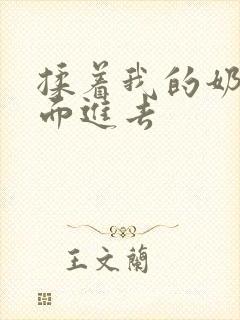 揉着我的奶
而進去
王文蘭